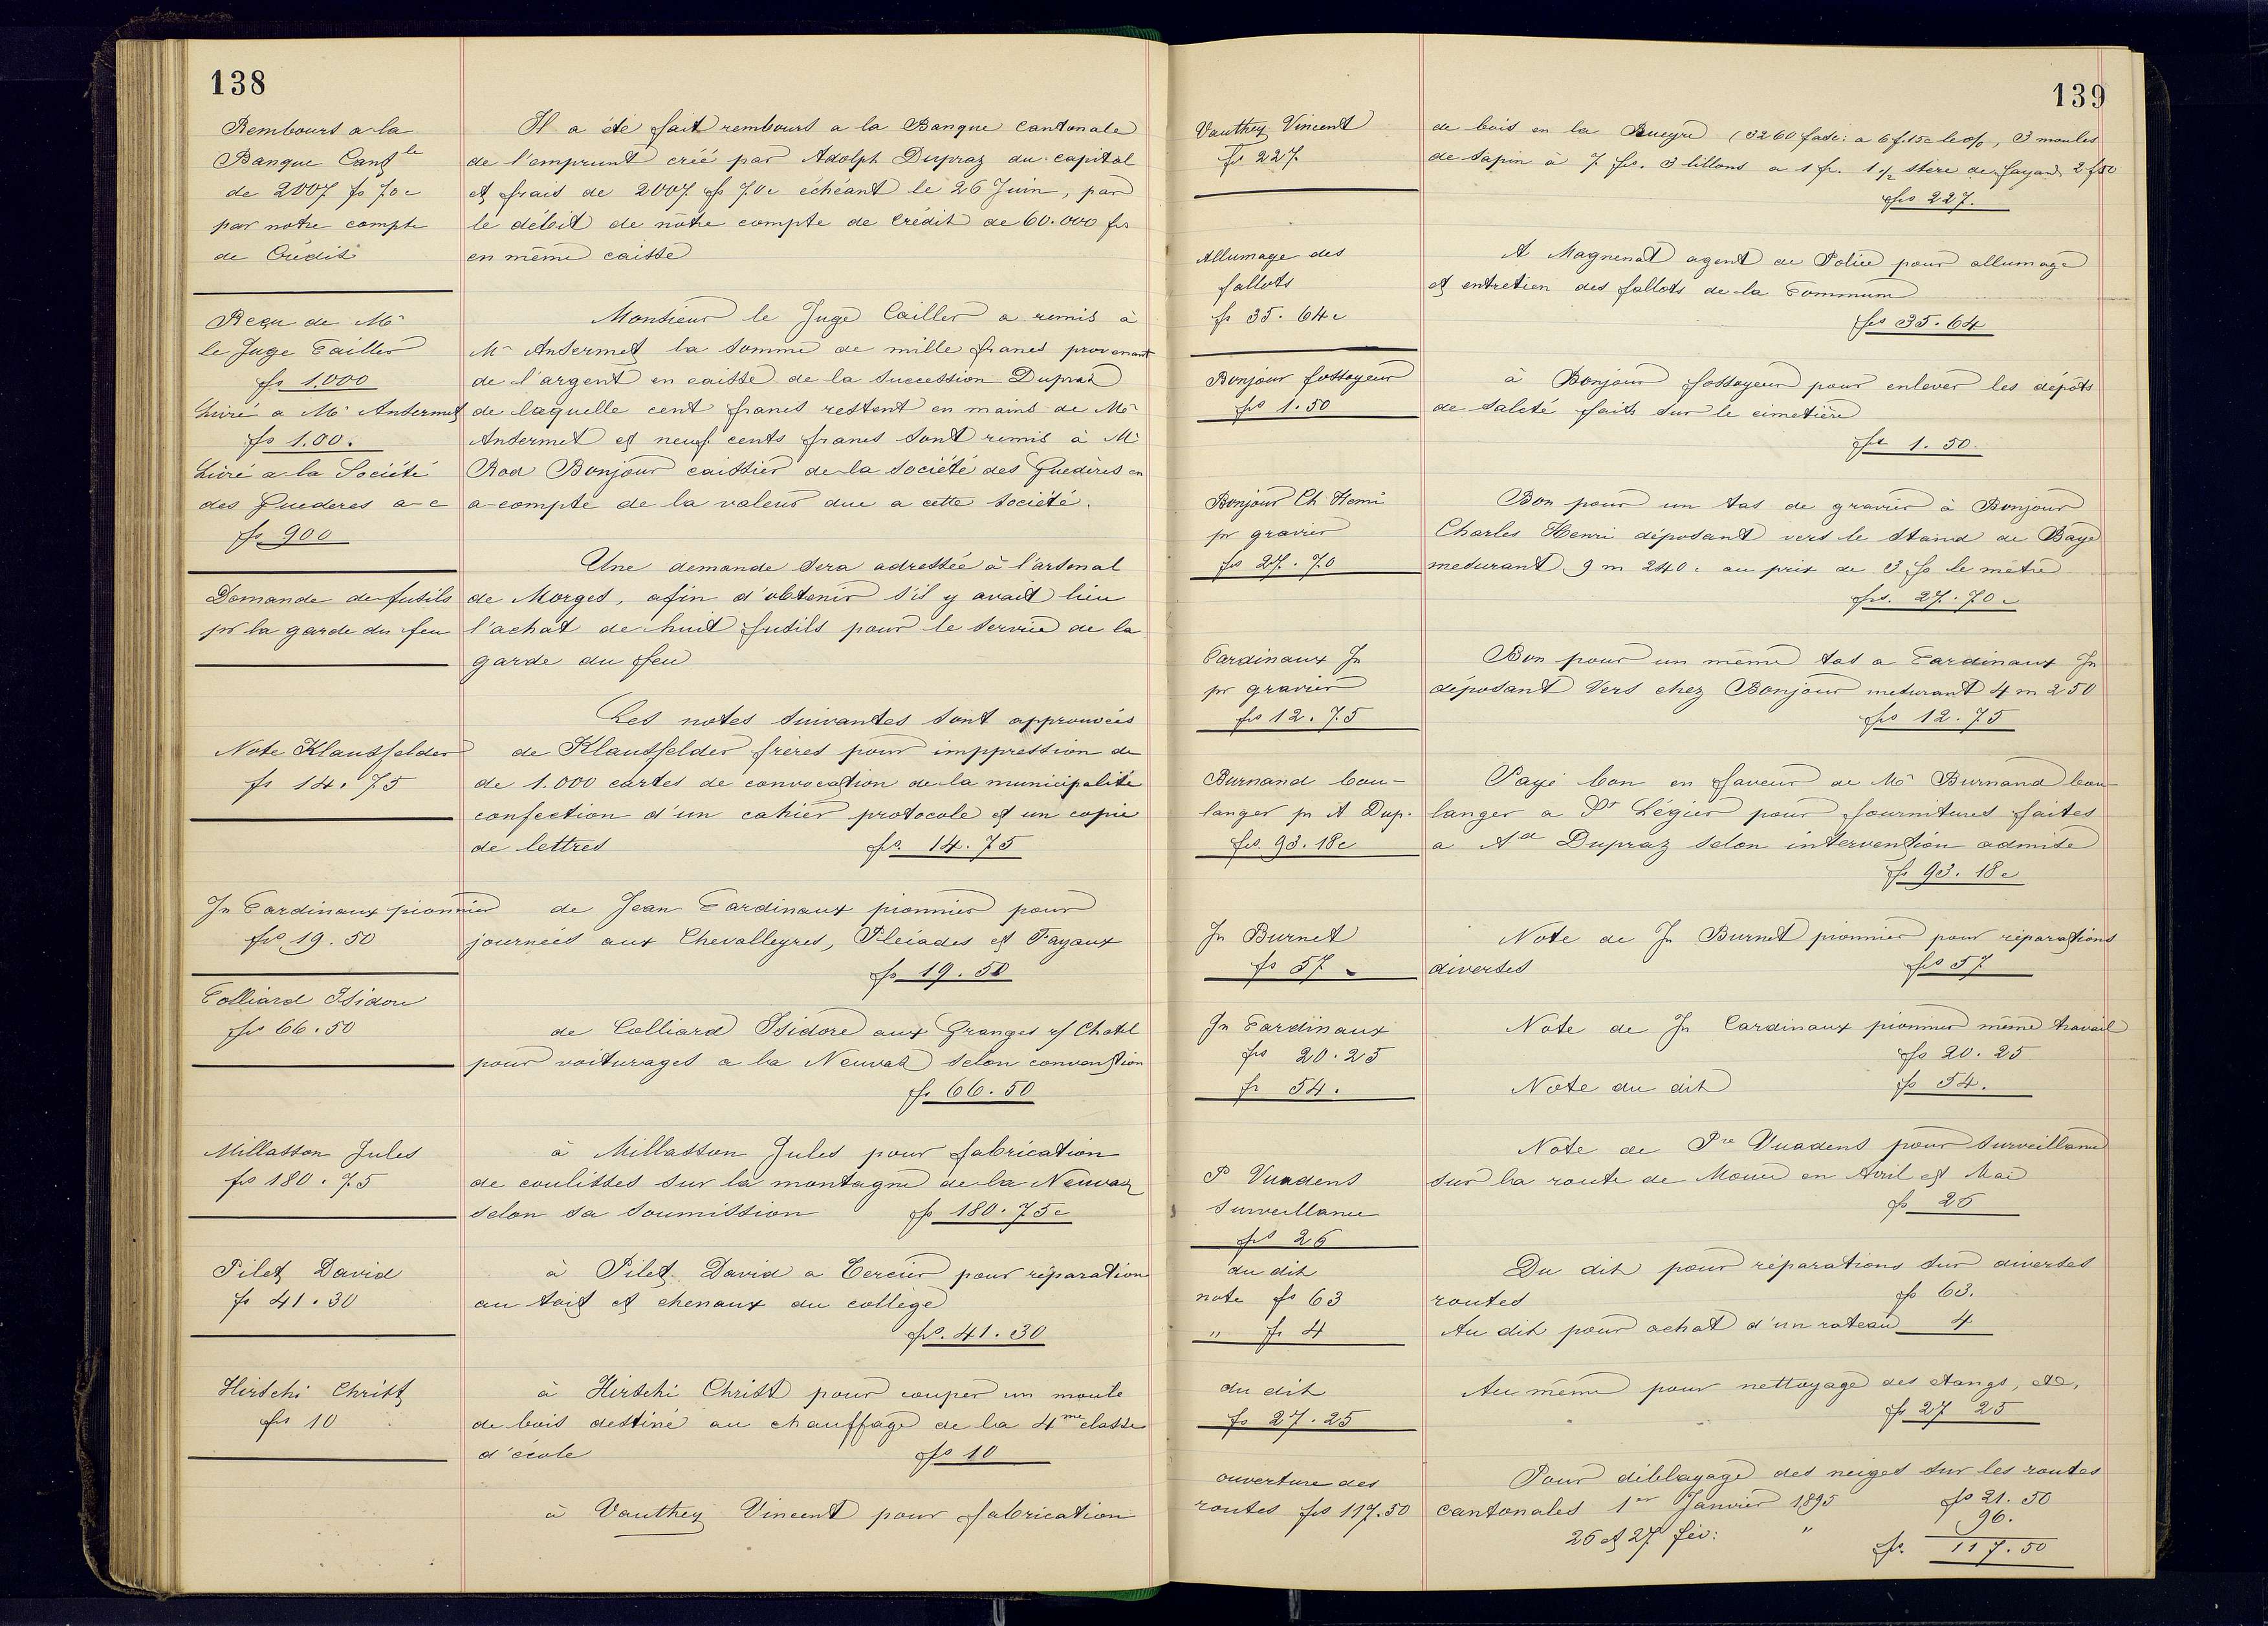 138
Rembours a la
Banque Cantle
de 2007 fs 70c
par notre compte
de Crédit
Il a été fait rembours a la Banque Cantonale
de l'emprunt créé par Adolph Dupraz du capital
et frais de 2007 fs 70c échéant le 26 Juin, par
le débit de nôtre compte de Crédit de 60.000 frs
en même caisse
Reçu de Mr
le Juge Cailler
fs 1.000
Livré a Mr Ansermet
fs 1.00.
Livré a la Société
des Guedères a-c
fs 900
Monsieur le Juge Cailler a remis à
Mr Ansermet la somme de mille francs provenant
de l'argent en caisse de la succession Dupraz
de laquelle cent francs restent en mains de Mr
Ansermet et neuf cents francs sont remis à Mr
Rod Bonjour caissier de la société des Guedères en
a-compte de la valeur due a cette société.
Demande de fusils
pr la garde du feu
Une demande sera adressée à l'arsenal
de Morges, afin d'obtenir s'il y avait lieu
l'achat de huit fusils pour le service de la
garde du feu
Les notes suivantes sont approuvées
Note Klausfelder
fs 14.75
de Klausfelder frères pour imppression de
de 1.000 cartes de convocation de la municipalité
confection d'un cahier protocole et un copie
de lettres fs. 14.75
Jn Cardinaux pionnier
frs 19.50
de Jean Cardinaux pionnier pour
journées aux Chevalleyres, Pleiades et Fayaux
fs 19.50
Colliard Isidore
frs 66.50
de Colliard Isidore aux Granges s/ Chatel
pour voiturages a la Neuvaz selon convenstion
fs. 66.50
Millasson Jules
frs 180.75
à Millasson Jules pour fabrication
de coulisses sur la montagne de la Neuvaz
selon sa soumission fs 180.75c
Pilet David
fs 41.30
à Pilet David a Cercier pour réparation
au toit et chenaux du collège
frs. 41.30
Hirschi Christ
frs 10
à Hirschi Christ pour couper un moule
de bois destiné au chauffage de la 4me classe
d'école fs 10
à Vauthey Vincent pour fabrication
139
Vauthey Vincent
fs 227.
de bois en la Rueyre (3260 fasc: a 6 f.15c le %, 3 moules
de sapin à 7 frs. 3 billons a 1 fr. 1 1/2 stère de fayard 2 f50
frs 227.
Allumage des
fallots
fs 35.64c
A Magnenat agent de Police pour allumage
et entretien des fallots de la Commune
frs 35.64
Bonjour fossoyeur
frs 1.50
à Bonjour fossoyeur pour enlever les dépôts
de saleté faits sur le cimetière
fr 1.50.
Bonjour Ch Henri
pr gravier
frs 27.70
Bon pour un tas de gravier à Bonjour
Charles Henri déposant vers le stand de Baye
mesurant 9 m 240c au prix de 3 fs le mètre
frs. 27.70c
Cardinaux Jn
pr gravier
frs 12.75
Bon pour un même tas a Cardinaux Jn
déposant Vers chez Bonjour mesurant 4 m 250
frs 12.75
Burnand bou-
langer pr A Dup.
frs. 93.18c
Payé bon en faveur de Mr Burnand bou-
langer a St Légier pour fournitures faites
a Ad Dupraz selon intervention admise
fs 93.18c
Jn Burnet
fs 57
Note de Jn Burnet pionnier pour réparations
diverses frs 57
Jn Cardinaux
frs 20.25
fr 54.
Note de Jn Cardinaux pionnier même travail
fs 20.25
Note du dit fs 54.
P Vuadens
surveillance
frs 26
Note de Pre Vuadens pour surveillance
sur la route de Mouu en Avril et Mai
fs 26
du dit
note fs 63
" fr 4
Du dit pour réparations sur diverses
routes fs 63.
Au dit pour achat d'un rateau 4
du dit
fs 27.25
Au même pour nettoyage des étangs, etc,
fs 27 25
ouverture des
routes frs 117.50
Pour déblayage des neiges sur les routes
cantonales 1er Janvier 1895 fs 21.50
26 et 27 fév: " 96.
fr. 117.50